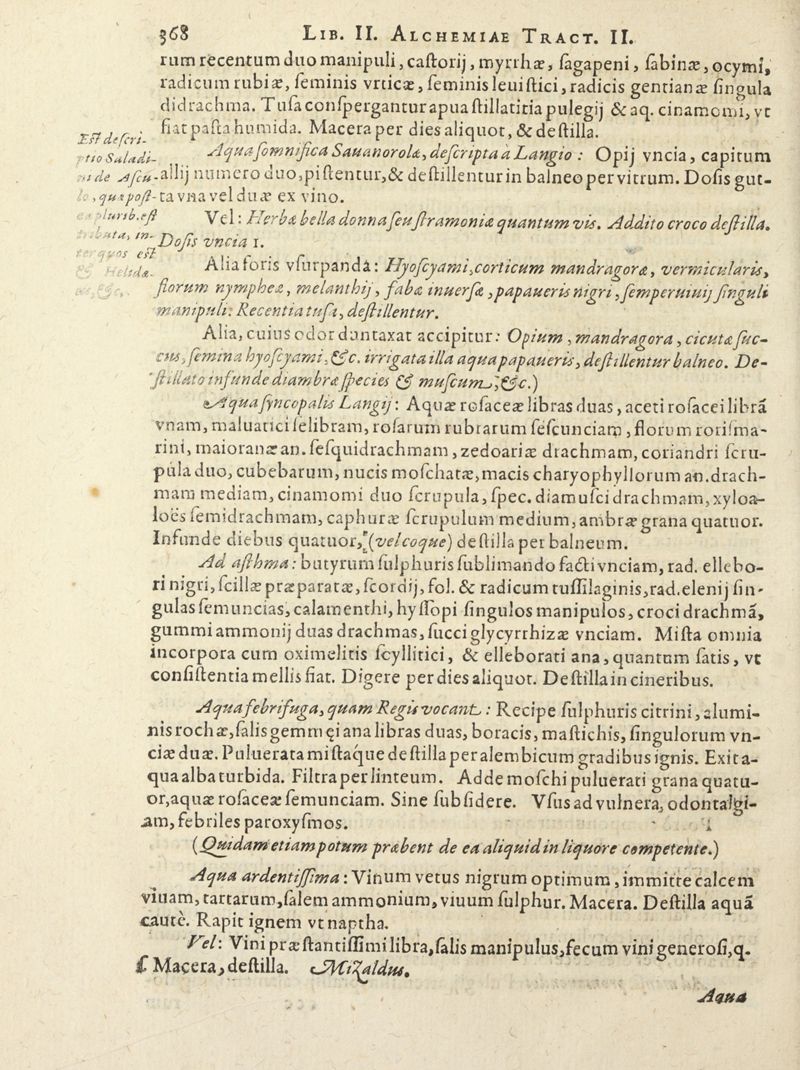 368 LIB. II. ALCHEMIAE TRACT. II.
rum recentum duo manipuli, caſtorij, myrrhæ, ſagapeni, ſabinæ, ocymi,
radicum rubiæ, ſeminis vrticæ, ſeminis leuiſtici, radicis gentianæ ſingula
didrachma. Tuſa conſpergantur apua ſtillatitia pulegij & aq. cinamomi, vt
fiat paſta humida. Macera per dies aliquot, & deſtilla.
Eſt deſcri-
ptio Saladi-
ni de Aſcu-
lo, quæ poſt-
plurib. eſt
Aqua ſomnifica Sauanorolæ, deſcripta à Langio: Opij vncia, capitum
allij numero duo, piſtentur, & deſtillentur in balneo per vitrum. Doſis gut-
ta vna vel duæ ex vino.
Vel: Herbæ bella donna ſeu ſtramoniæ quantum vis. Addito croco deſtilla.
Doſis vncia 1.
Alia foris vſurpanda: Hyoſcyami, corticum mandragoræ, vermicularis,
florum nympheæ, melanthij, fabæ inuerſæ, papaueris nigri, ſemperuiuij ſinguli
manipuli. Recentia tuſa, deſtillentur.
Alia, cuius odor duntaxat accipitur: Opium, mandragora, cicutæ ſuc-
cus, ſemina hyoſcyami, &c. irrigata illa aqua papaueris, deſtillentur balneo. De-
ſtillato infunde diambræ ſpecies & muſcum, &c.)
Aqua ſyncopalis Langij: Aquæ roſaceæ libras duas, aceti roſacei librā
vnam, maluatici ſelibram, roſarum rubrarum ſeſcunciam, florum roriſma-
rini, maioranæ an. ſeſquidrachmam, zedoariæ drachmam, coriandri ſcru-
pula duo, cubebarum, nucis moſchatæ, macis charyophyllorum an. drach-
mam mediam, cinamomi duo ſcrupula, ſpec. diamuſci drachmam, xyloa-
loës ſemidrachmam, caphuræ ſcrupulum medium, ambræ grana quatuor.
Infunde diebus quatuor, (vel coque) deſtilla per balneum.
Ad aſthma: butyrum ſulphuris ſublimando facti vnciam, rad. ellebo-
ri nigri, ſcillæ præparatæ, ſcordij, fol. & radicum tuſſilaginis, rad. elenij ſin-
gulas ſemuncias, calamenthi, hyſſopi ſingulos manipulos, croci drachmā,
gummi ammonij duas drachmas, ſucci glycyrrhizæ vnciam. Miſta omnia
incorpora cum oximelitis ſcyllitici, & elleborati ana, quantum ſatis, vt
conſiſtentia mellis fiat. Digere per dies aliquot. Deſtilla in cineribus.
Aqua febrifuga, quam Regis vocant: Recipe ſulphuris citrini, alumi-
nis rochæ, ſalis gemmęi ana libras duas, boracis, maſtichis, ſingulorum vn-
ciæ duæ. Puluerata miſtaque deſtilla per alembicum gradibus ignis. Exit a-
qua alba turbida. Filtra per linteum. Adde moſchi puluerati grana quatu-
or, aquæ roſaceæ ſemunciam. Sine ſubſidere. Vſus ad vulnera, odontalgi-
am, febriles paroxyſmos.
(Quidam etiam potum præbent de ea aliquid in liquore competente.)
Aqua ardentiſſima: Vinum vetus nigrum optimum, immitte calcem
viuam, tartarum, ſalem ammonium, viuum ſulphur. Macera. Deſtilla aquā
cautè. Rapit ignem vt naptha.
Vel: Vini præſtantiſſimi libra, ſalis manipulus, fecum vini generoſi, q.
ſ. Macera, deſtilla. Mizaldus.
Aqua